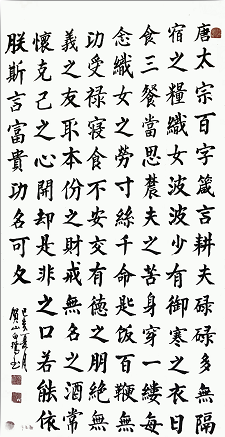 唐太宗百字箴言耕夫碌碌多無隔
宿之糧織女波波少有御寒之衣日
食三餐當思農夫之苦身穿一縷每
念織女之勞寸絲千命匙飯百鞭無
功受禄寝食不安交有德之朋絶無
義之友取本份之財戒無名之酒常
懷克己之心開却是非之口若能依
朕斯言富貴功名可久